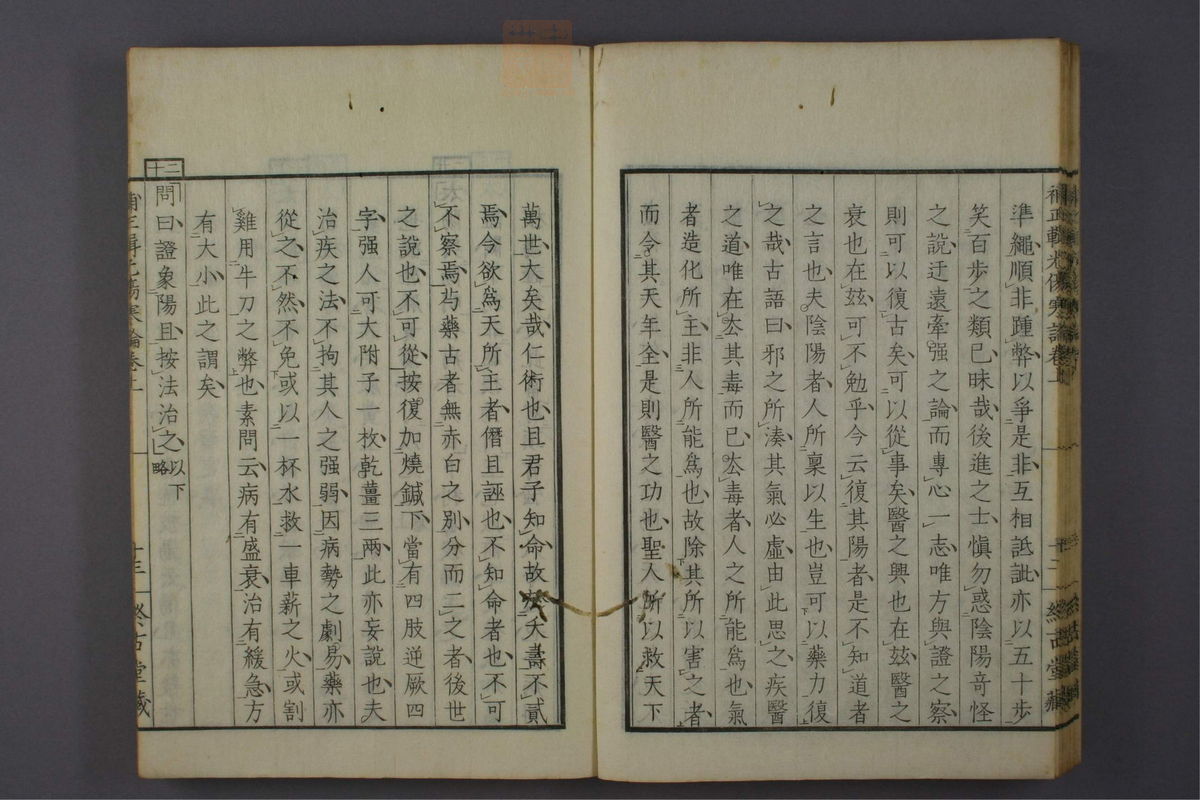 準繩順非踵弊以爭是非互相詆訿亦以五十步
笑百步之類已昧哉後進之士愼勿惑陰陽奇怪
之說迂遠牽强之論而專心一志唯方與證之察
則可以復古矣可以從事矣醫之興也在玆醫之
衰也在玆可不勉乎今云復其陽者是不知道者
之言也夫陰陽者人所稟以生也豈可以藥力復
之哉古語曰邪之所湊其氣必虛由此思之疾醫
之道唯在去其毒而已去毒者人之所能爲也氣
者造化所主非人所能爲也故除其所以害之者
而令其天年全是則醫之功也聖人所以救天下
萬世大矣哉仁術也且君子知命故夭壽不貳
焉今欲爲天所主者僭且誣也不知命者也不可
不察焉芍藥古者無赤白之別分而二之者後世
之說也不可從按復加燒鍼下當有四肢逆厥四
字强人可大附子一枚乾薑三兩此亦妄說也夫
治疾之法不拘其人之强弱因病勢之劇易藥亦
從之不然不免或以一杯水救一車薪之火或割
雞用牛刀之弊也素問云病有盛衰治有緩急方
有大小此之謂矣
二十
問曰證象陽旦按法治之以下略
十三
終古堂藏